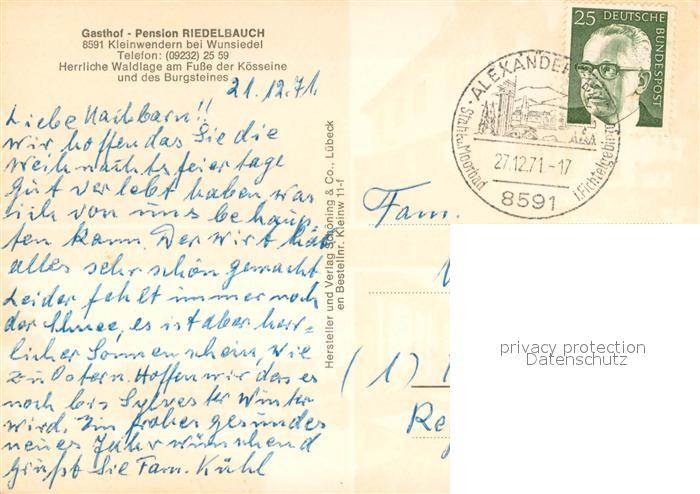 Gasthof - Pension RIEDELBAUCH
8591 Kleinwendern bei Wunsiedel
Telefon: (09232) 25 59
Herrliche Waldlage am Fuße der Kösseine
und des Burgsteines
21.12.71.
Liebe Nachbarn!!
Wir hoffen das Sie die
Weihnachtsfeiertage
Gut verlebt haben was
sich von uns behaup-
ten kann. Der Wirt hat
alles sehr schön gemacht
Leider fehlt immer noch
der Schnee, es ist aber herr-
licher Sonnenschein, wie
zu Ostern. Hoffen wir das es
noch bis Sylvester Winter
wird. Ein frohes gesundes
neues Jahr wünschend
grüßt Sie Fam. Kühl
Hersteller und Verlag Schöning & Co., Lübeck
en Bestellnr. Kleinw 11-f
25 DEUTSCHE
BUNDESPOST
ALEXANDERSBAD
Stahl u. Moorbad
i. Fichtelgebirge
27.12.71-17
8591
Fam.
(1)
Re
privacy protection
Datenschutz